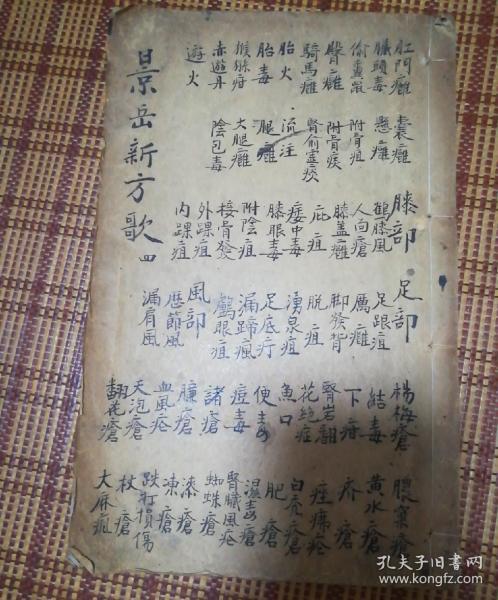 肛門癰
臟頭毒
偷糞鼠
臀癰
騎馬癰
胎火
胎毒
猴猻疳
赤遊丹
遊火
囊癰
懸癰
附骨疽
附骨痰
腎俞虛痰
流注
腿癰
大腿癰
陰包毒
膝部
鶴膝風
人向瘡
膝蓋癰
庇疽
痿中毒
膝眼毒
附陰疽
接骨發
外踝疽
內踝疽
足部
足跟疽
厲癰
脚發背
脫疽
湧泉疽
足底疔
漏蹄瘋
鸛眼疽
風部
歷節風
漏肩風
楊梅瘡
結毒
下疳
腎岩翻
花絕症
魚口
便毒
痘毒
諸瘡
臁瘡
血風疮
天泡瘡
翻花瘡
膿窠瘡
黃水瘡
疥瘡
痤痱疮
白禿瘡
肥瘡
濕毒瘡
腎臟風疮
蜘蛛瘡
漆瘡
凍瘡
跌打損傷
杖瘡
大麻瘋
景岳新方歌 四
孔夫子旧书网
www.kongfz.com